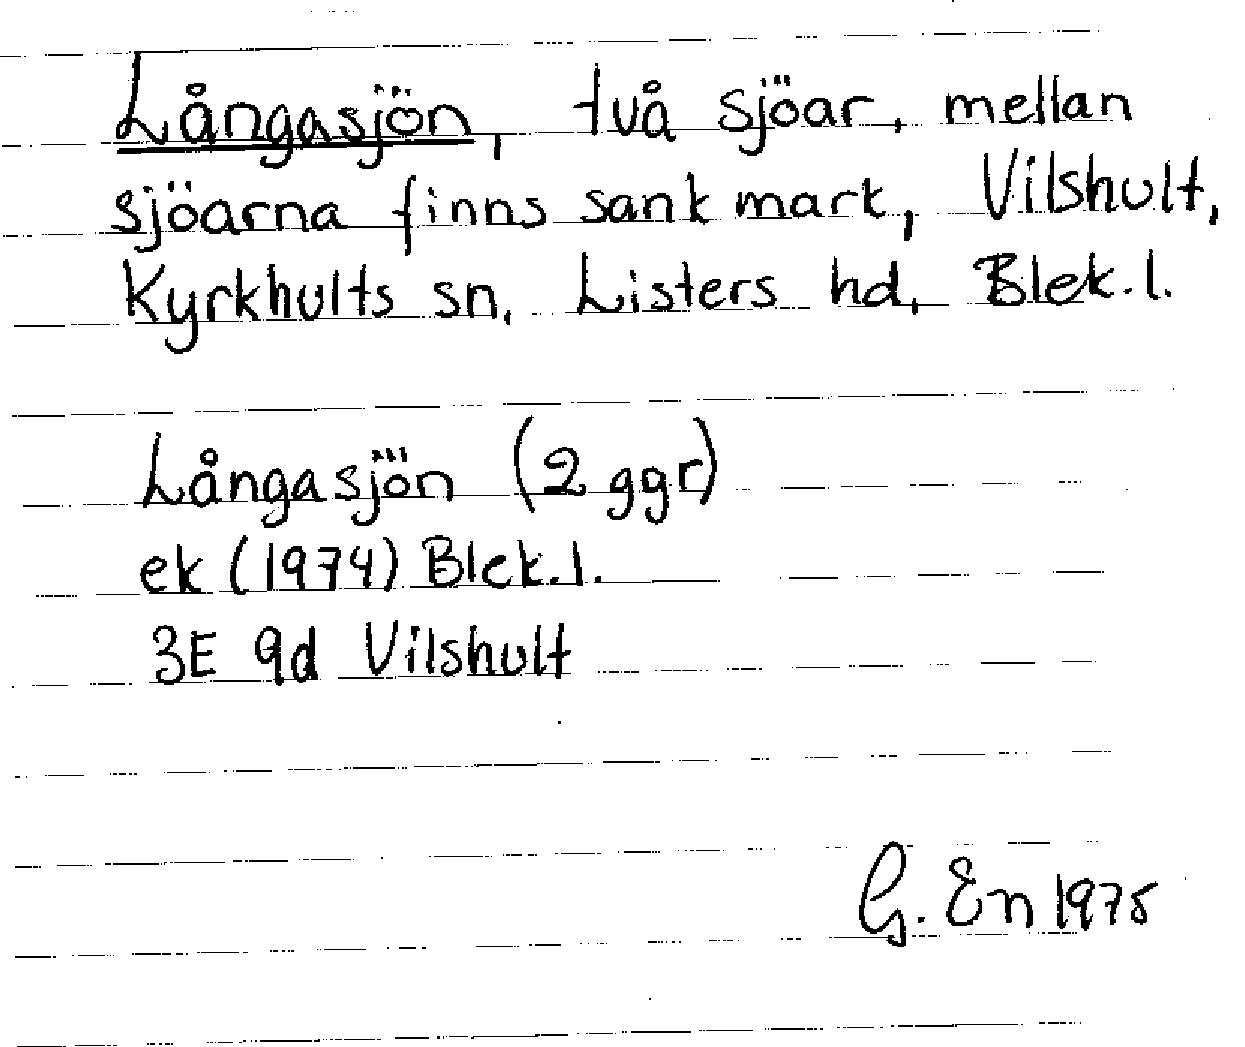 Långasjön, två sjöar, mellan
sjöarna finns sank mark, Vilshult,
Kyrkhults sn, Listers hd, Blek. l.
Långasjön (2 ggr)
ek (1974) Blek. l.
3E 9d Vilshult
G. En 1975